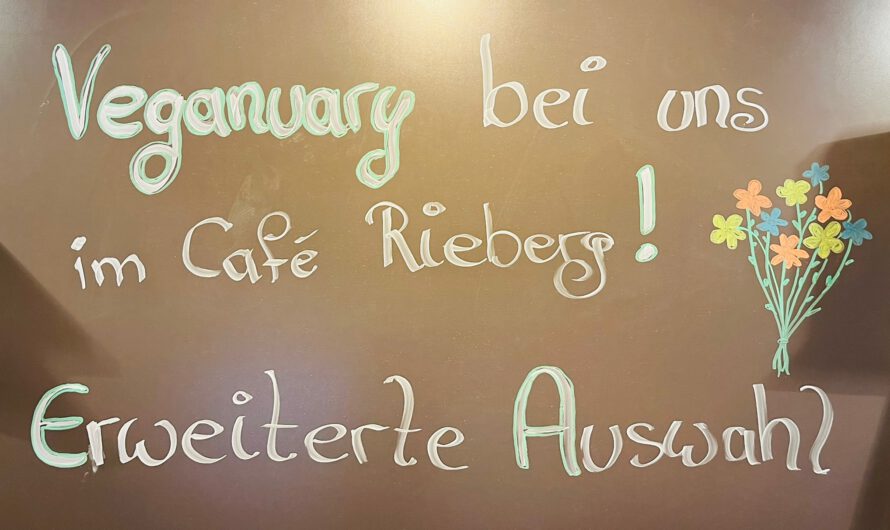 Veganuary bei uns
im Café Rieberg!
Erweiterte Auswahl